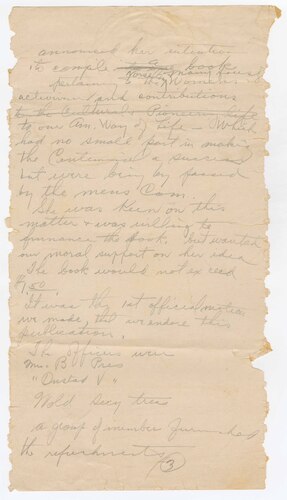 announced her intention
to compile a book
pertaining to Women
activities and contributions
to the Cultural & Pioneering Life
to our Am. Way of Life — Which
had no small part in making
the Centennial a success
but were being by passed
by the mens Com.
She was keen on this
matter & was willing to
finance the book, but wanted
our moral support on her idea
The book would not exceed
$1.50.
It was the 1st official motion
we made, that we endorse this
publication.
The officers were
Mrs. B Pres
" Oustad V "
Wold Secy treas
a group of member furnished
the refreshments
3